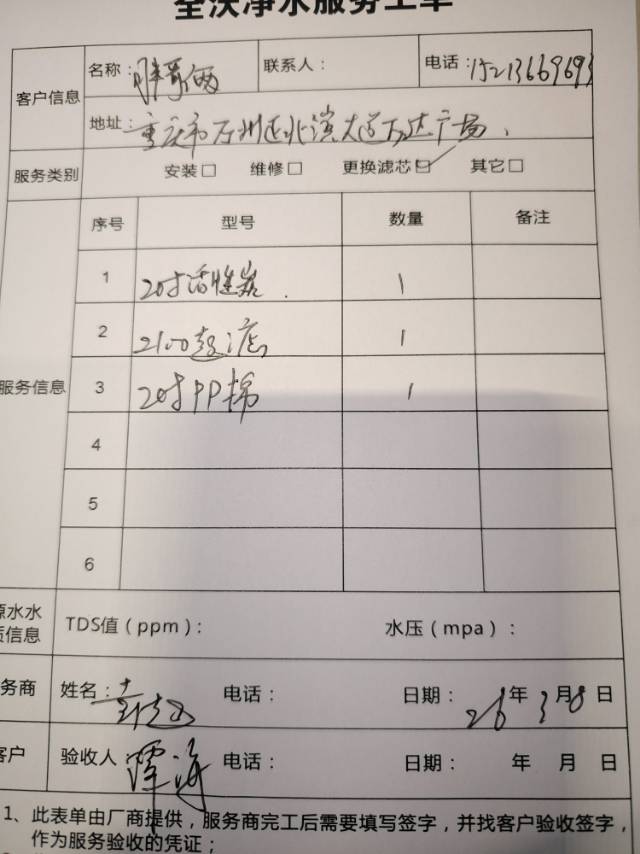 全沃净水服务工单
客户信息
名称：胖哥俩 联系人： 电话：15213669693
地址：重庆市万州区北滨大道万达广场.
服务类别 安装□ 维修□ 更换滤芯☑ 其它□
序号 型号 数量 备注
服务信息
1 20寸活性炭 1
2 2100超滤 1
3 20寸PP棉 1
4
5
6
源水水
质信息
TDS值（ppm）： 水压（mpa）：
务商 姓名： 电话： 日期：26年3月8日
客户 验收人 谭海 电话： 日期： 年 月 日
1、此表单由厂商提供，服务商完工后需要填写签字，并找客户验收签字，
作为服务验收的凭证；